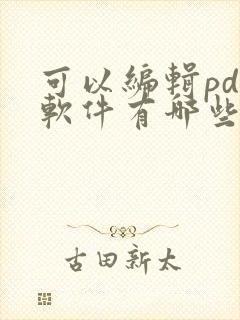 可以編輯pd
軟件有哪些
古田新太